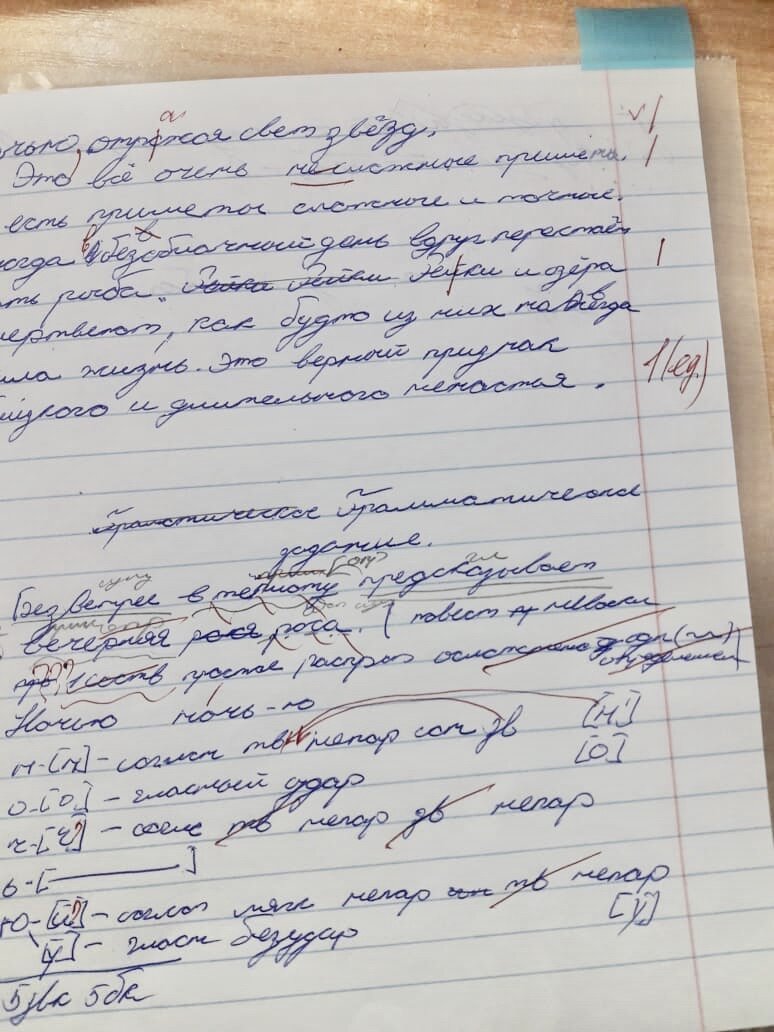 а
чью, отражая свет звёзд. √ |
Это всё очень несложные приметы. |
есть приметы сложные и точные.
огда в безоблачный день вдруг перестаёт
ать роса. Рейки Рейки Реки и озёра |
мертвеют, как будто из них навсегда
ила жизнь. Это верный признак 1(ед.)
лизкого и длительного ненастья.
Грамматическое Грамматическое
задание.
сущ гл
Безветрие в теплоту предсказывает
вечерняя рося роса. (повест невоскл
1 соств простое распрос осложнено
Ночью ночь-ю
н-[н]-согласн тв непар сон зв [н']
о-[о]-гласный удар [о]
ч-[ч']-согл тв непар зв непар
ь-[ ]
ю-[й']-соглас мягк непар тв непар
[у]-гласн безудар [у]
5 звк 5 бк